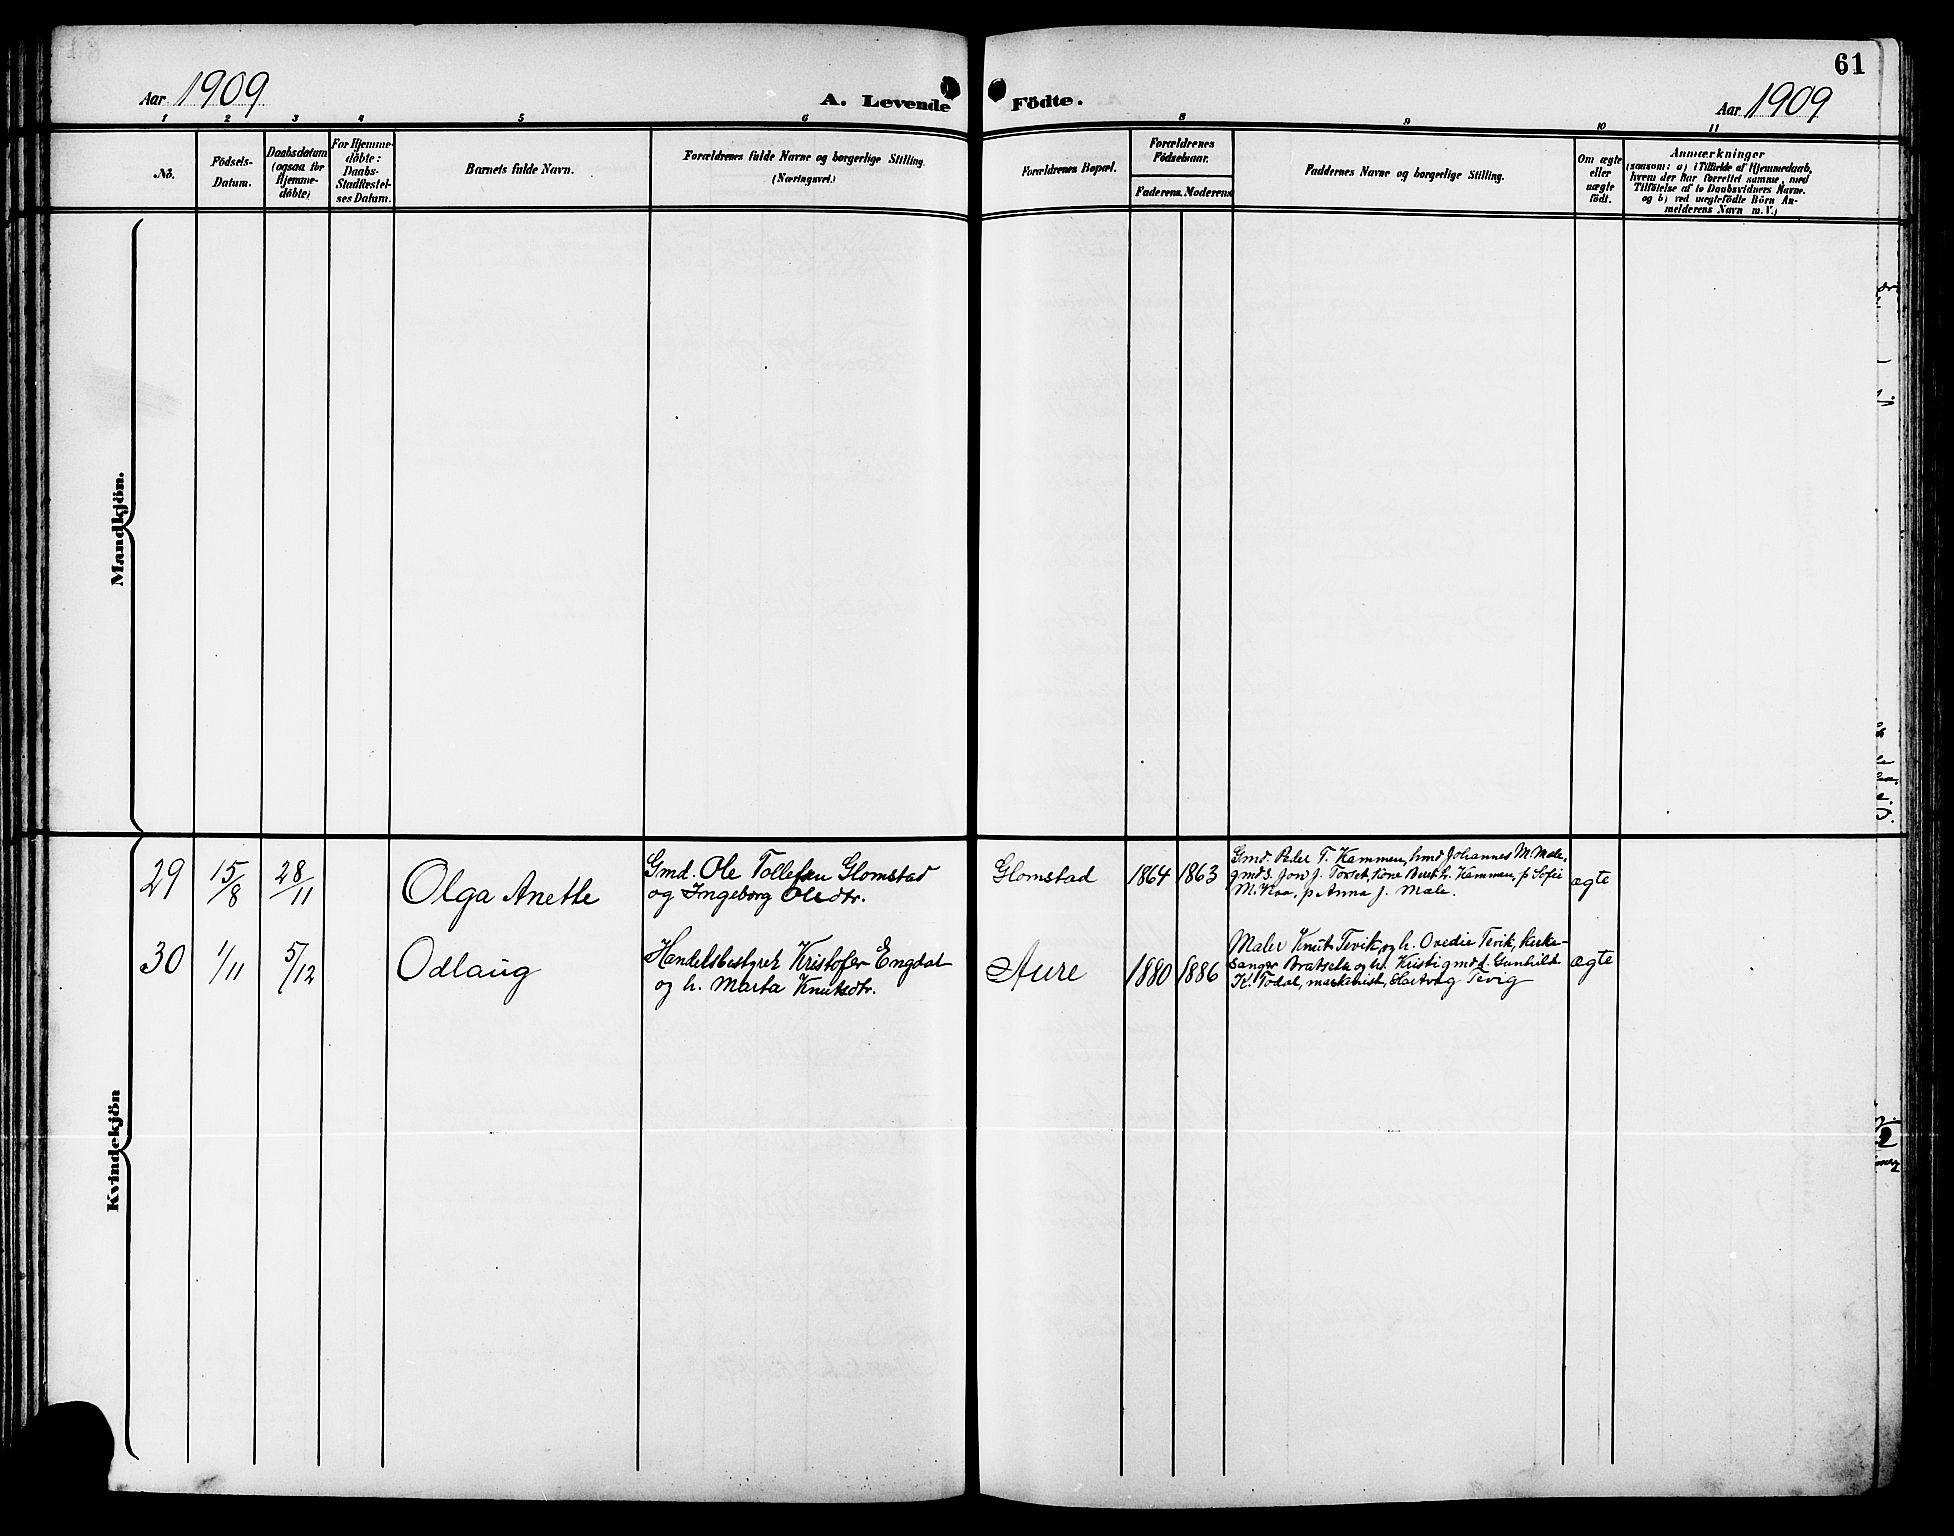 61
Aar 1909
A. Levende Födte.
Aar 1909
1 2 3 4 5 6 8 9 10 11
No.
Födsels-
Datum.
Daabsdatum
(ogsaa for
Hjemme-
döbte)
For Hjemme-
döbte:
Daabs-
Stadfæstel-
ses Datum.
Barnets fulde Navn.
Forældrenes fulde Navne og borgerlige Stilling.
(Næringsvei.)
Forældrenes Bopæl.
Forældrenes
Födselsaar.
Faderens. Moderens
Faddernes Navne og borgerlige Stilling.
Om ægte
eller
uægte
födt.
Anmærkninger
(saasom: a) i Tilfælde af Hjemmedaab,
hvem der har forrettet samme, med
Tilföielse af to Daabsvidners Navne.
og b) ved uægtefödte Börn An-
melderens Navn m. V.)
Mandkjön.
Kvindekjön
29
15/8
28/11
Olga Anette
Gmd. Ole Tollefsen Glomstad
og Ingeborg Olsdtr.
Glomstad
1864
1863
Gmd. Peder T. Hammen, hmd Johannes M. Male,
gmds. Jon J. Torset, kone Berit h. Hammen, p Sofie
M. p Anna J. Male.
ægte
30
1/11
5/12
Odlaug
Handelsbestyrer Kristofer Engdal
og h. Marta Knutsdtr.
Aure
1880
1886
Maler Knut Tevik, og h. Ovedie Tevik, kirke-
sanger Bratseth og h. Kristi gmd. Gunhild
K. Todal, maskinist, Hartvig Tevig
ægte